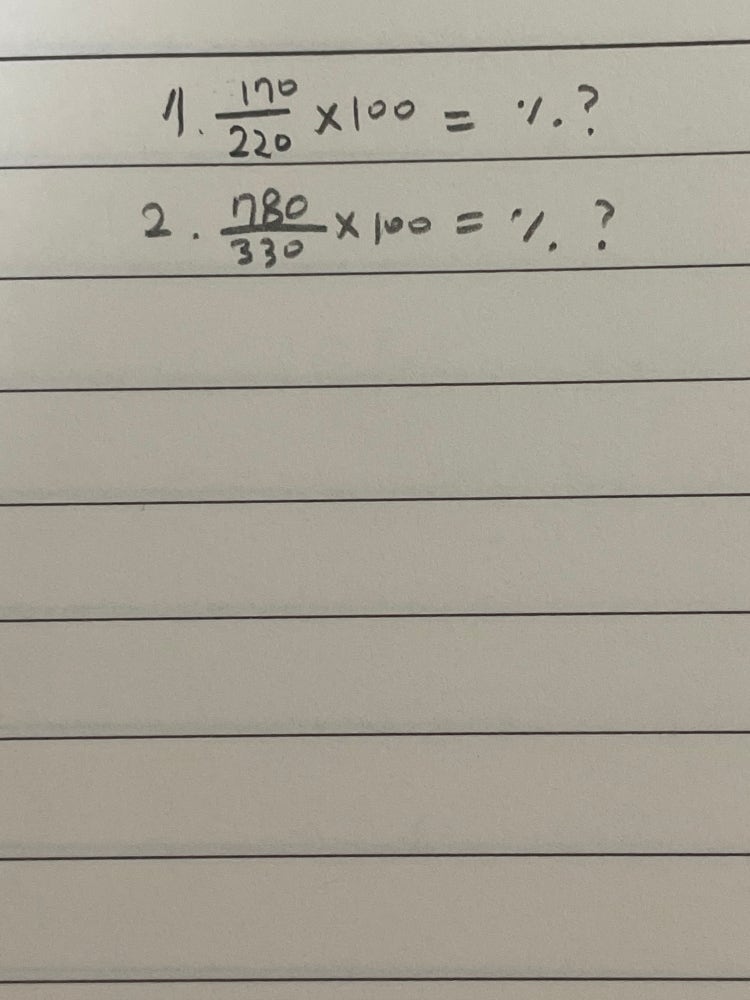 1. 170/220 × 100 = %. ?
2. 780/330 × 100 = %. ?